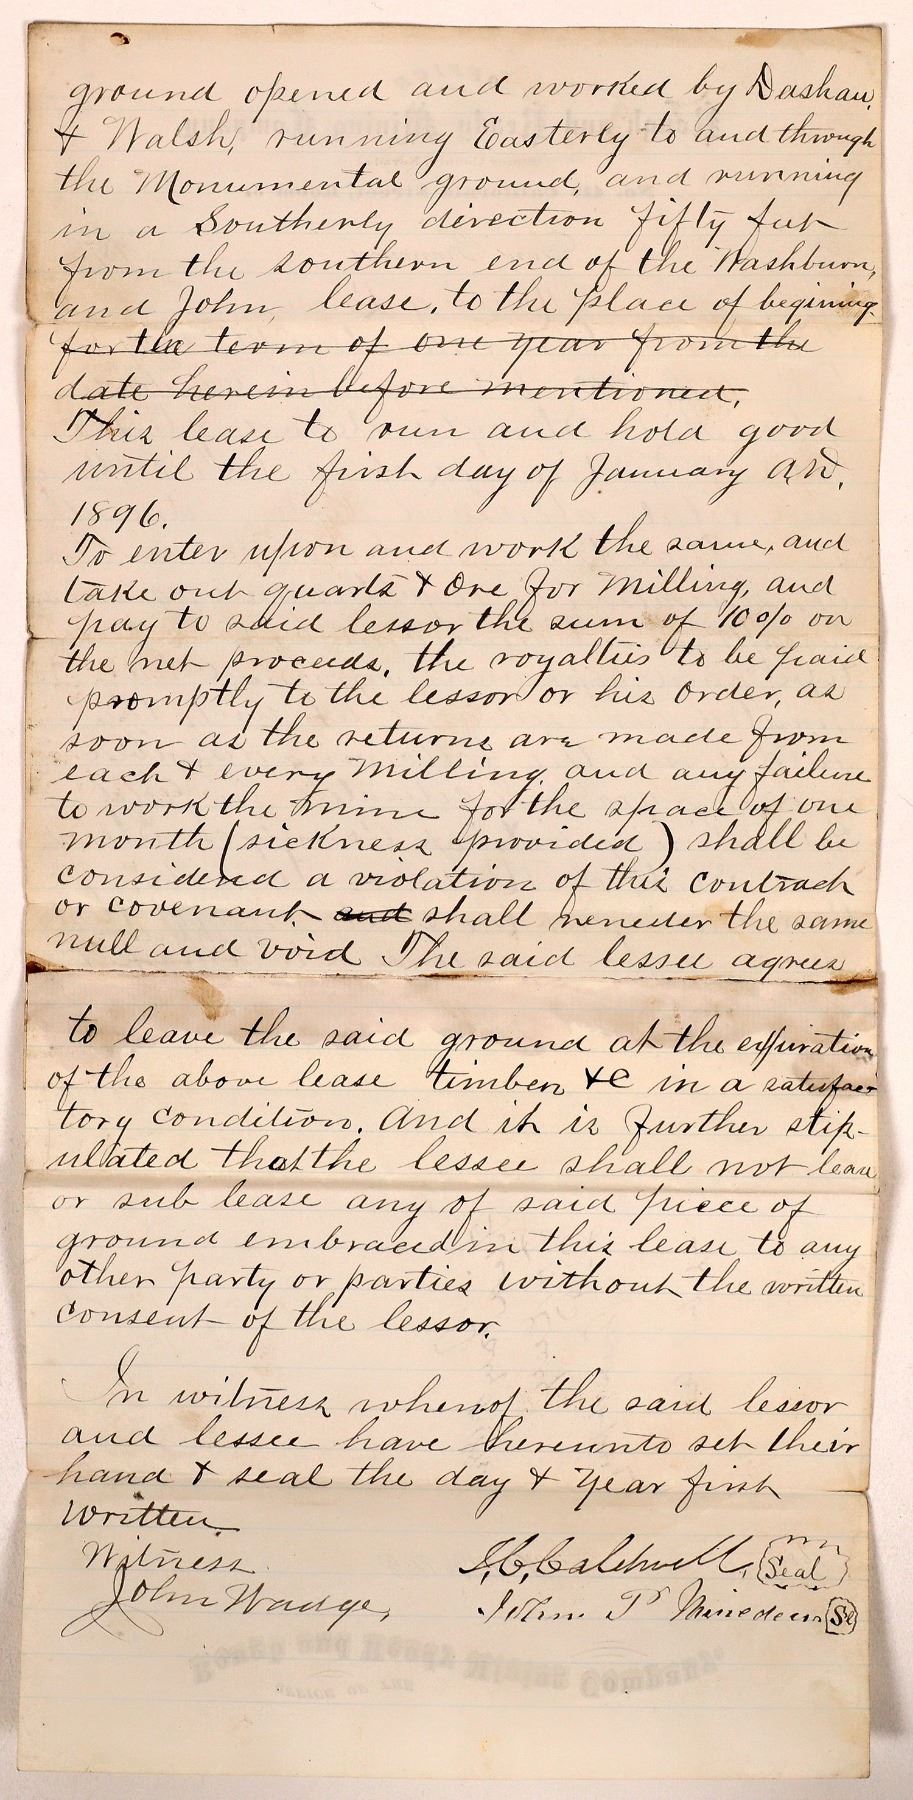 ground opened and worked by Dashau,
& Walsh, running Easterly to and through
the Monumental ground, and running
in a Southerly direction fifty feet
from the southern end of the Washburn,
and John, lease, to the place of begining.
for the term of one year from the
date herein before mentioned.
This lease to run and hold good
until the first day of January A.D.
1896.
To enter upon and work the same, and
take out quartz & Ore for Milling, and
pay to said lessor the sum of 10% on
the net proceeds, the royalties to be paid
promptly to the lessor or his Order, as
soon as the returns are made from
each & every Milling, and any failure
to work the mine for the space of one
month (sickness provided) shall be
considered a violation of this contract
or covenant and shall reneder the same
null and void The said lessee agrees
to leave the said ground at the expiration
of the above lease timber &c in a satisfac-
tory condition. And it is further stip-
ulated that the lessee shall not lease
or sub lease any of said piece of
ground embraced in this lease to any
other party or parties without the written
consent of the lessor.
In witness whereof the said lessor
and lessee have hereunto set their
hand & seal the day & year first
written.
Witness
John Wadge,
Caldwell, Seal
John
Mining Company
Office of the